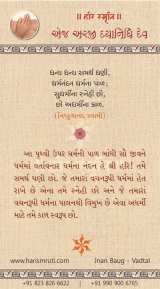 ॥ હરિ સ્મૃતિ ॥
એજ અરજી દયાનિધિ દેવ
ધન્ય ધન્ય સમર્થ ઘણી,
ધર્મનંદન ધર્મના પાળ;
સુધર્મીના સ્નેહી છો,
છો અધર્મીના કાળ.
(નિષ્કુળાનંદ સ્વામી)
આ પૃથ્વી ઉપર ધર્મની પાળ બાંધી સૌ જીવને
ધર્મમાં વર્તાવનાર ધર્મના નંદન હે શ્રી હરિ! તમે
સમર્થ ધણી છો. જે તમારાં વચનરૂપી ધર્મમાં હેત
રાખે છે એના તમે સ્નેહી છો અને જે તમારાં
વચનરૂપી ધર્મના પાલનથી વિમુખ છે એવા અધર્મી
માટે તમે કાળ સ્વરૂપ છો.
www.harismruti.com
Jnan Baug - Vadtal
+91 823 826 6622
+91 990 900 2765